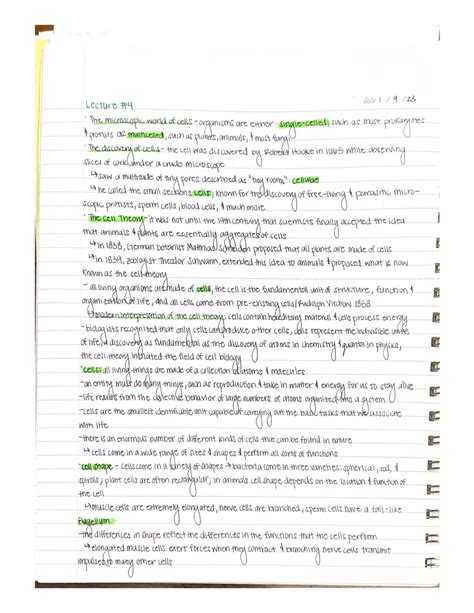 date 1 / 9 / 23
Lecture #4
· The microscopic world of cells - organisms are either single-celled, such as most prokaryotes
& protists or multicelled, such as plants, animals, & most fungi
· The discovery of cells - the cell was discovered by Robert Hooke in 1665 while observing
slices of cork under a crude microscope
↳ saw a multitude of tiny pores described as "tiny rooms": cellulae
↳ he called the small sections cells, known for the discovery of free-living & parasitic micro-
scopic protists, sperm cells, blood cells, & much more
· The Cell Theory - it was not until the 19th century that scientists finally accepted the idea
that animals & plants are essentially aggregates of cells
↳ In 1838, German botanist Matthias Schleiden proposed that all plants are made of cells
↳ In 1839, zoologist Theodor Schwann, extended this idea to animals & proposed what is now
known as the cell theory
- all living organisms are made of cells, the cell is the fundamental unit of structure, function, &
organization of life, and all cells come from pre-existing cells, Rudolph Virchow 1858
↳ modern interpretation of the cell theory: cells contain hereditary material & cells process energy
- biologists recognized that only cells can produce other cells, cells represent the indivisible units
of life, & discovery as fundamental as the discovery of atoms in chemistry & quanta in physics,
the cell theory initiated the field of cell biology
· cells: all living things are made of a collection of atoms & molecules
- an entity must do many things, such as reproduction & take in matter & energy for us to stay alive
- life results from the collective behavior of large numbers of atoms organized into a system
- cells are the smallest identifiable unit capable of carrying out the basic tasks that we associate
with life
- there is an enormous number of different kinds of cells that can be found in nature
↳ cells come in a wide range of sizes & shapes & perform all sorts of functions
· cell shape - cells come in a variety of shapes → bacteria come in three varieties: spherical, rod, &
spirals; plant cells are often rectangular; in animals cell shape depends on the location & function of
the cell
↳ muscle cells are extremely elongated, nerve cells are branched, sperm cells have a tail-like
flagellum
- the differences in shape reflect the differences in the functions that the cells perform
↳ elongated muscle cells exert forces when they contract & branching nerve cells transmit
impulses to many other cells